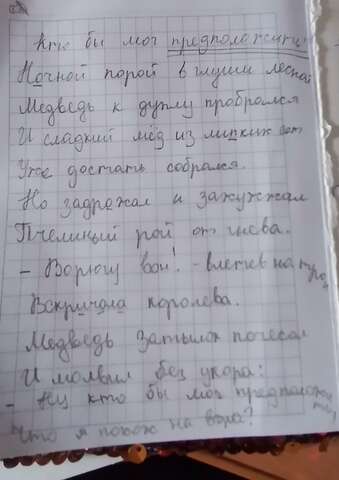 Кто бы мог предположить
Ночной порой в глуши лесной
Медведь к дуплу пробрался
И сладкий мёд из липких сот
Уже достать собрался.
Но задрожал и зажужжал
Пчелиный рой от гнева.
- Ворюгу вон! - влетев на трон,
Вскричала королева.
Медведь затылок почесал
И молвил без укора:
- Ну кто бы мог предположить
Что я похож на вора?